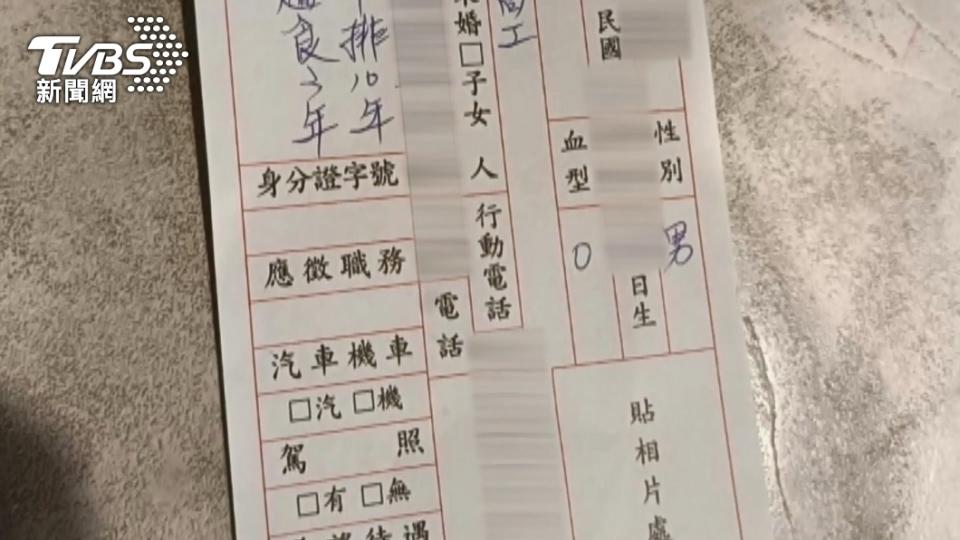 TVBS
新聞網
民國
性別
男
日生
血型
O
貼相片處
工
婚□子女 人
行動電話
電話
排10年
食3年
身分證字號
應徵職務
汽車機車
□汽 □機
駕照
□有 □無
待遇